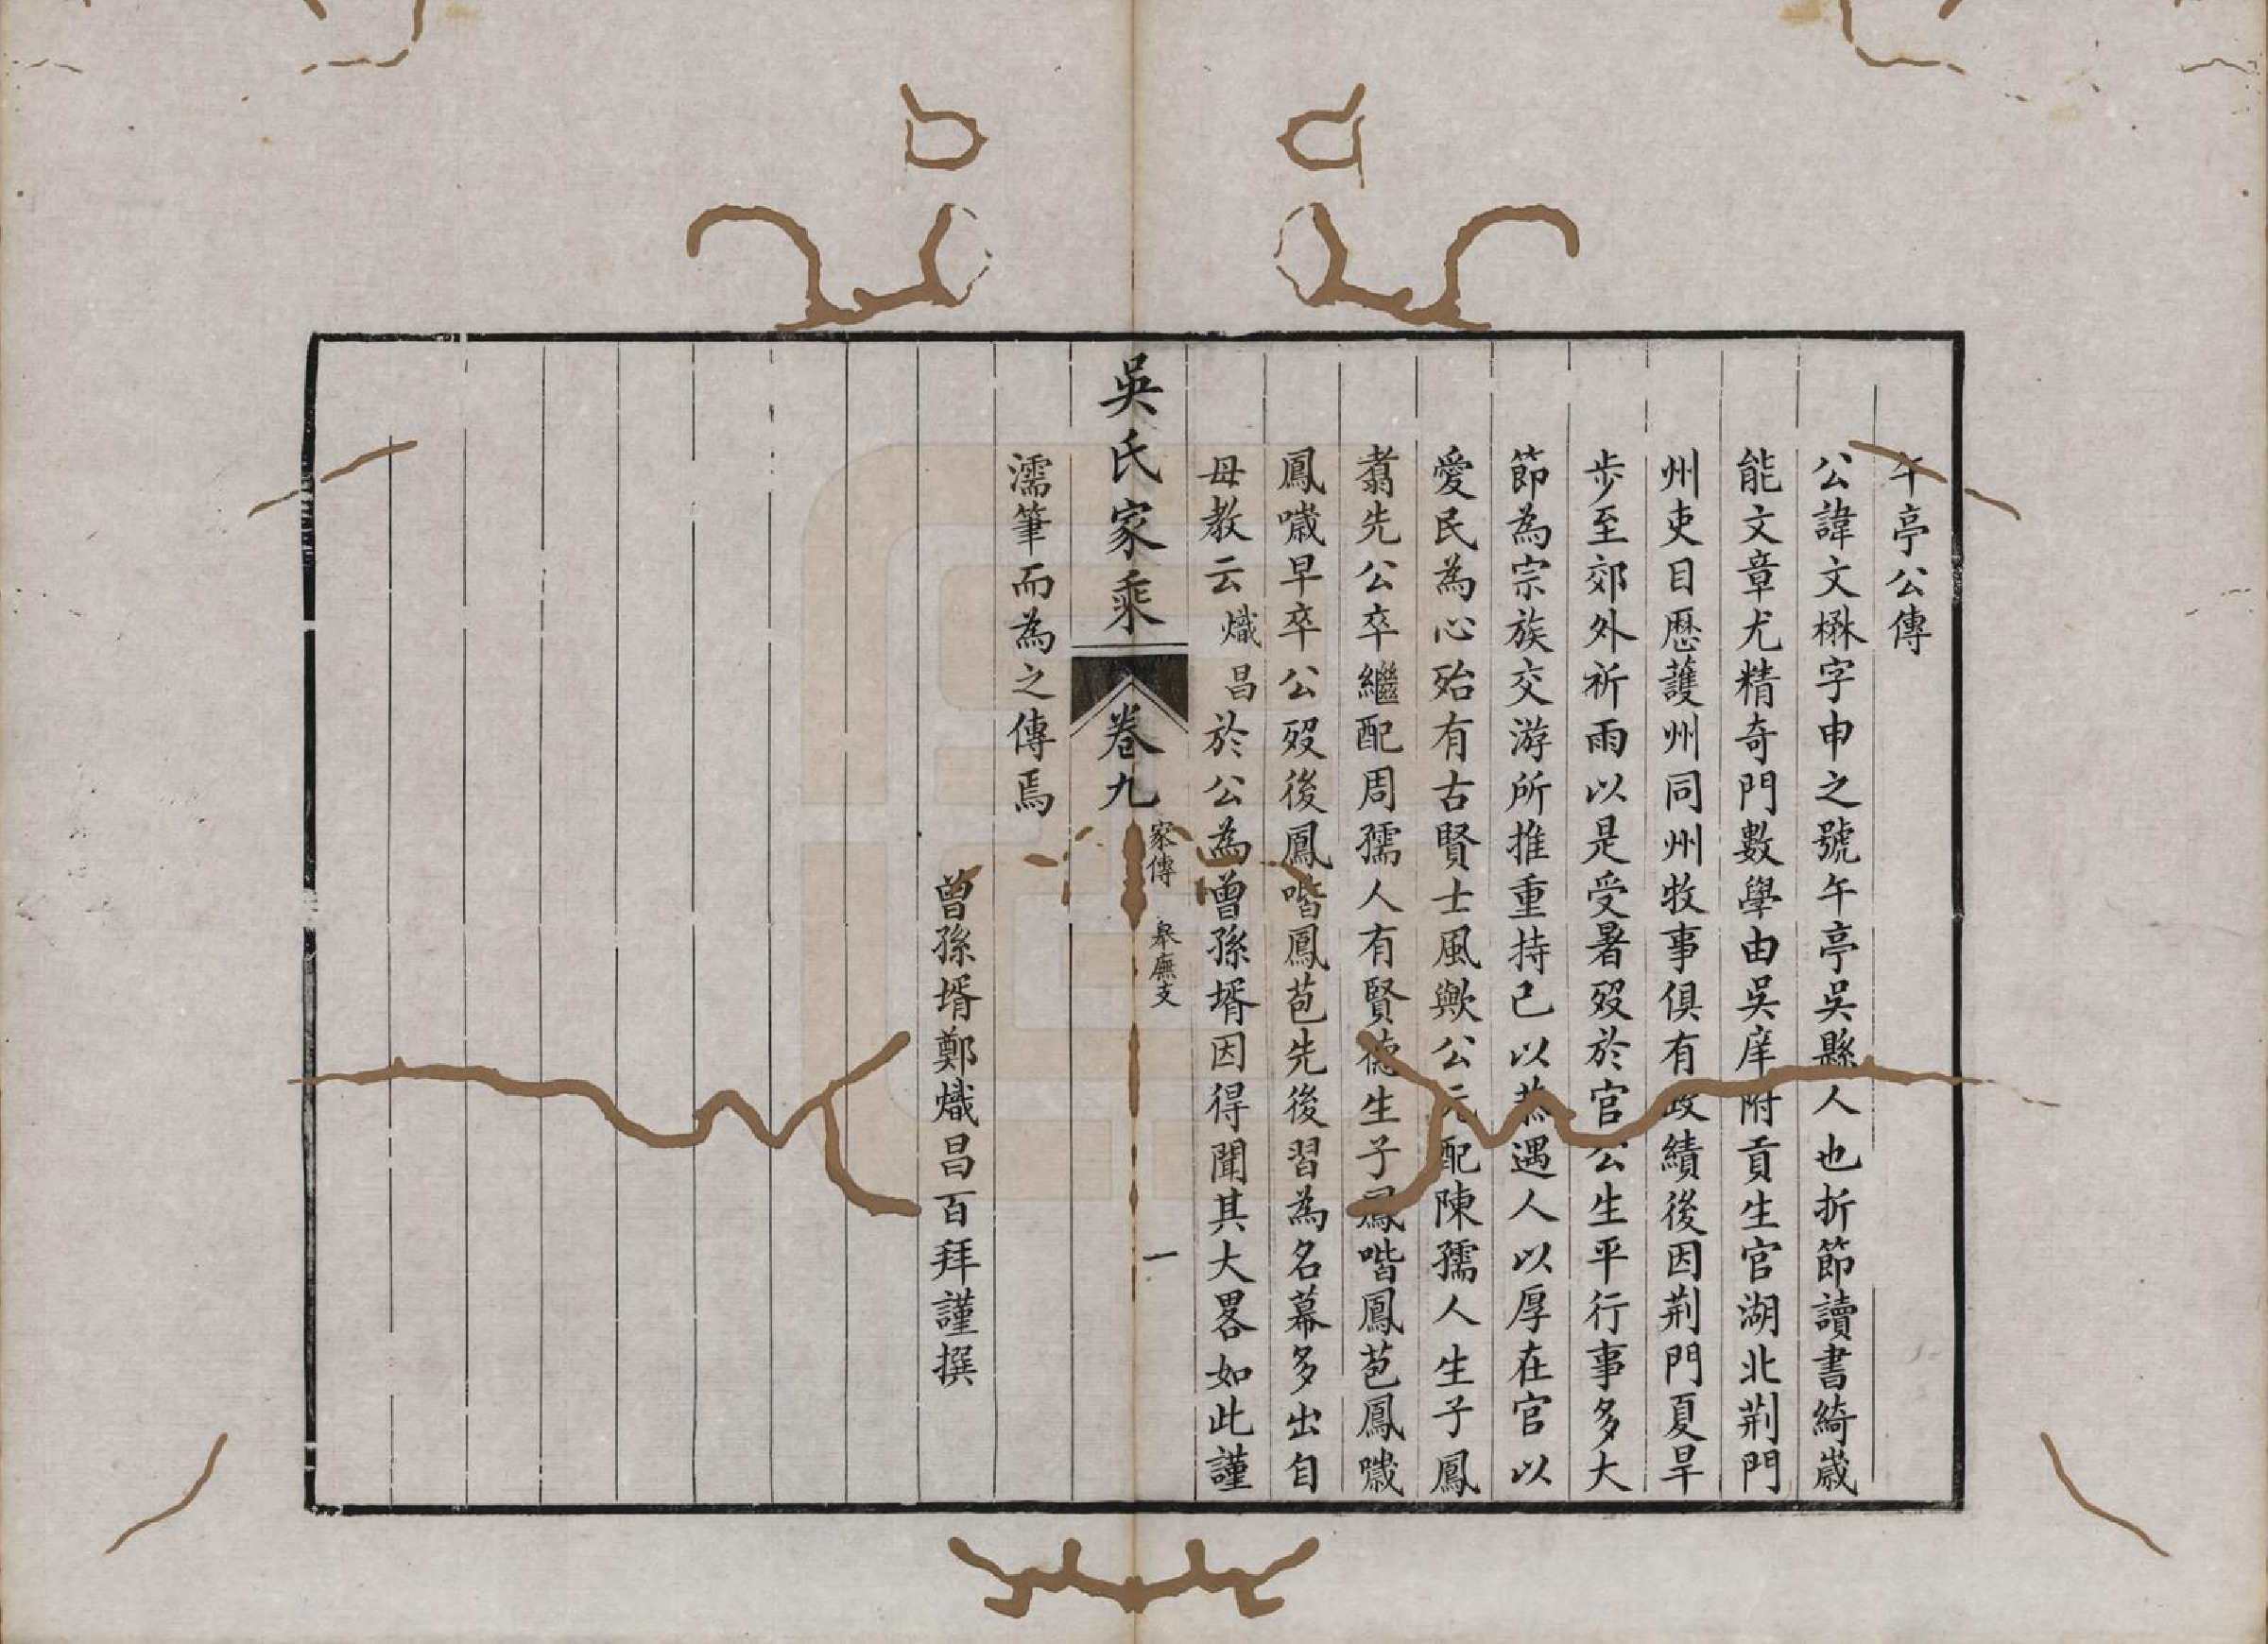 午亭公傳
公諱文楙字申之號午亭吳縣人也折節讀書綺歲
能文章尤精奇門數學由吳庠附貢生官湖北荆門
州吏目歷護州同州牧事俱有政績後因荆門夏旱
步至郊外祈雨以是受暑歿於官公生平行事多大
節為宗族交游所推重持己以恭遇人以厚在官以
愛民為心殆有古賢士風歟公元配陳孺人生子鳳
翥先公卒繼配周孺人有賢德生子鳳喈鳳苞鳳噦
鳳噦早卒公歿後鳳喈鳳苞先後習為名幕多出自
母教云熾昌於公為曾孫壻因得聞其大畧如此謹
吳氏家乘
卷九
家傳
皋廡支
一
濡筆而為之傳焉
曾孫壻鄭熾昌百拜謹撰